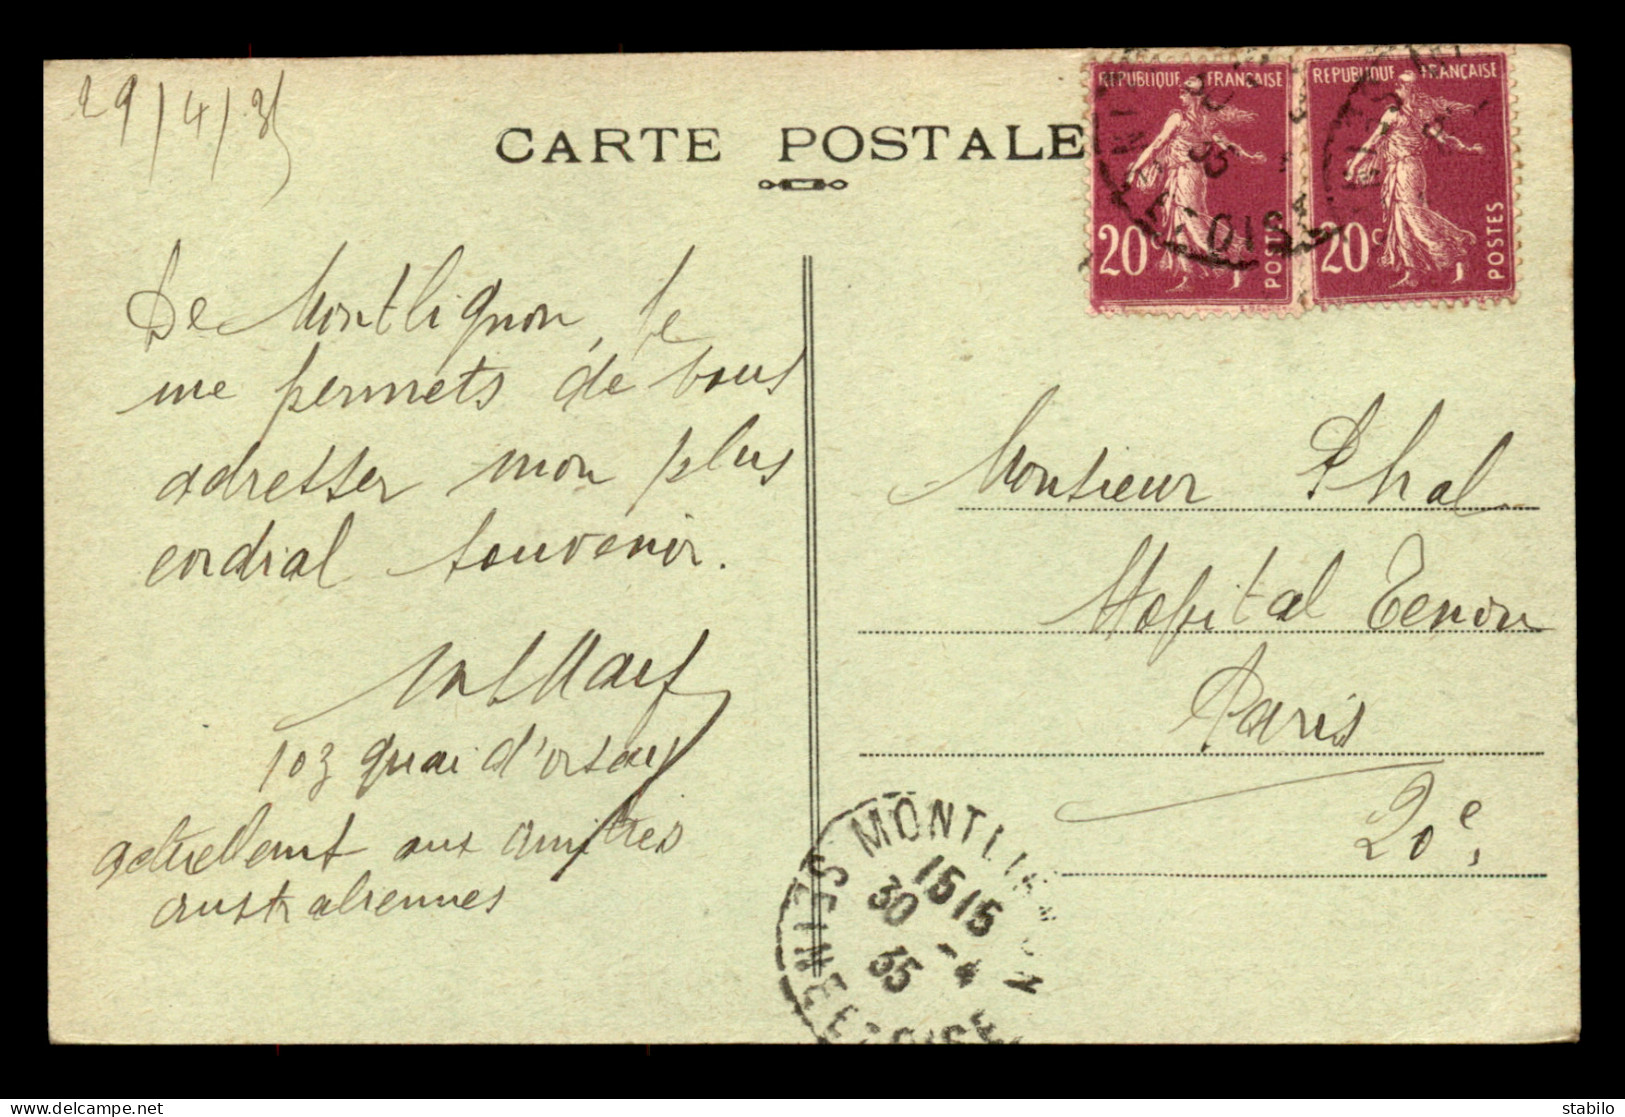 29/4/35
CARTE POSTALE
REPUBLIQUE FRANÇAISE
20c
POSTES
REPUBLIQUE FRANÇAISE
20c
POSTES
35
OISE
De Montlignon, je
me permets de vous
adresser mon plus
cordial souvenir.
103 quai d'orsay
actuellemt aux
australiennes
Monsieur Phal
Hopital Tenon
Paris
20e.
MONTLIGNON
15 15
30 -4
35
SEINE ET OISE
delcampe.net
stabilo